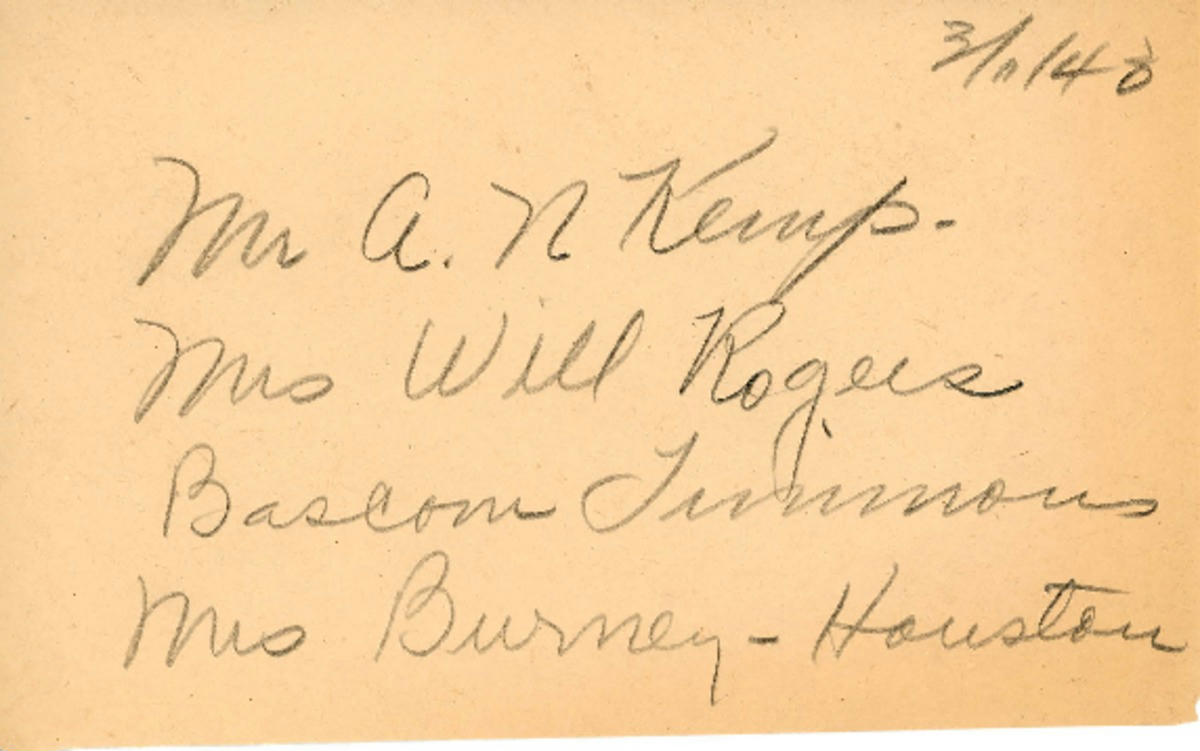 3/11/48
Mr A. N Kemp.
Mrs Will Rogers
Bascom Timmons
Mrs Burney - Houston